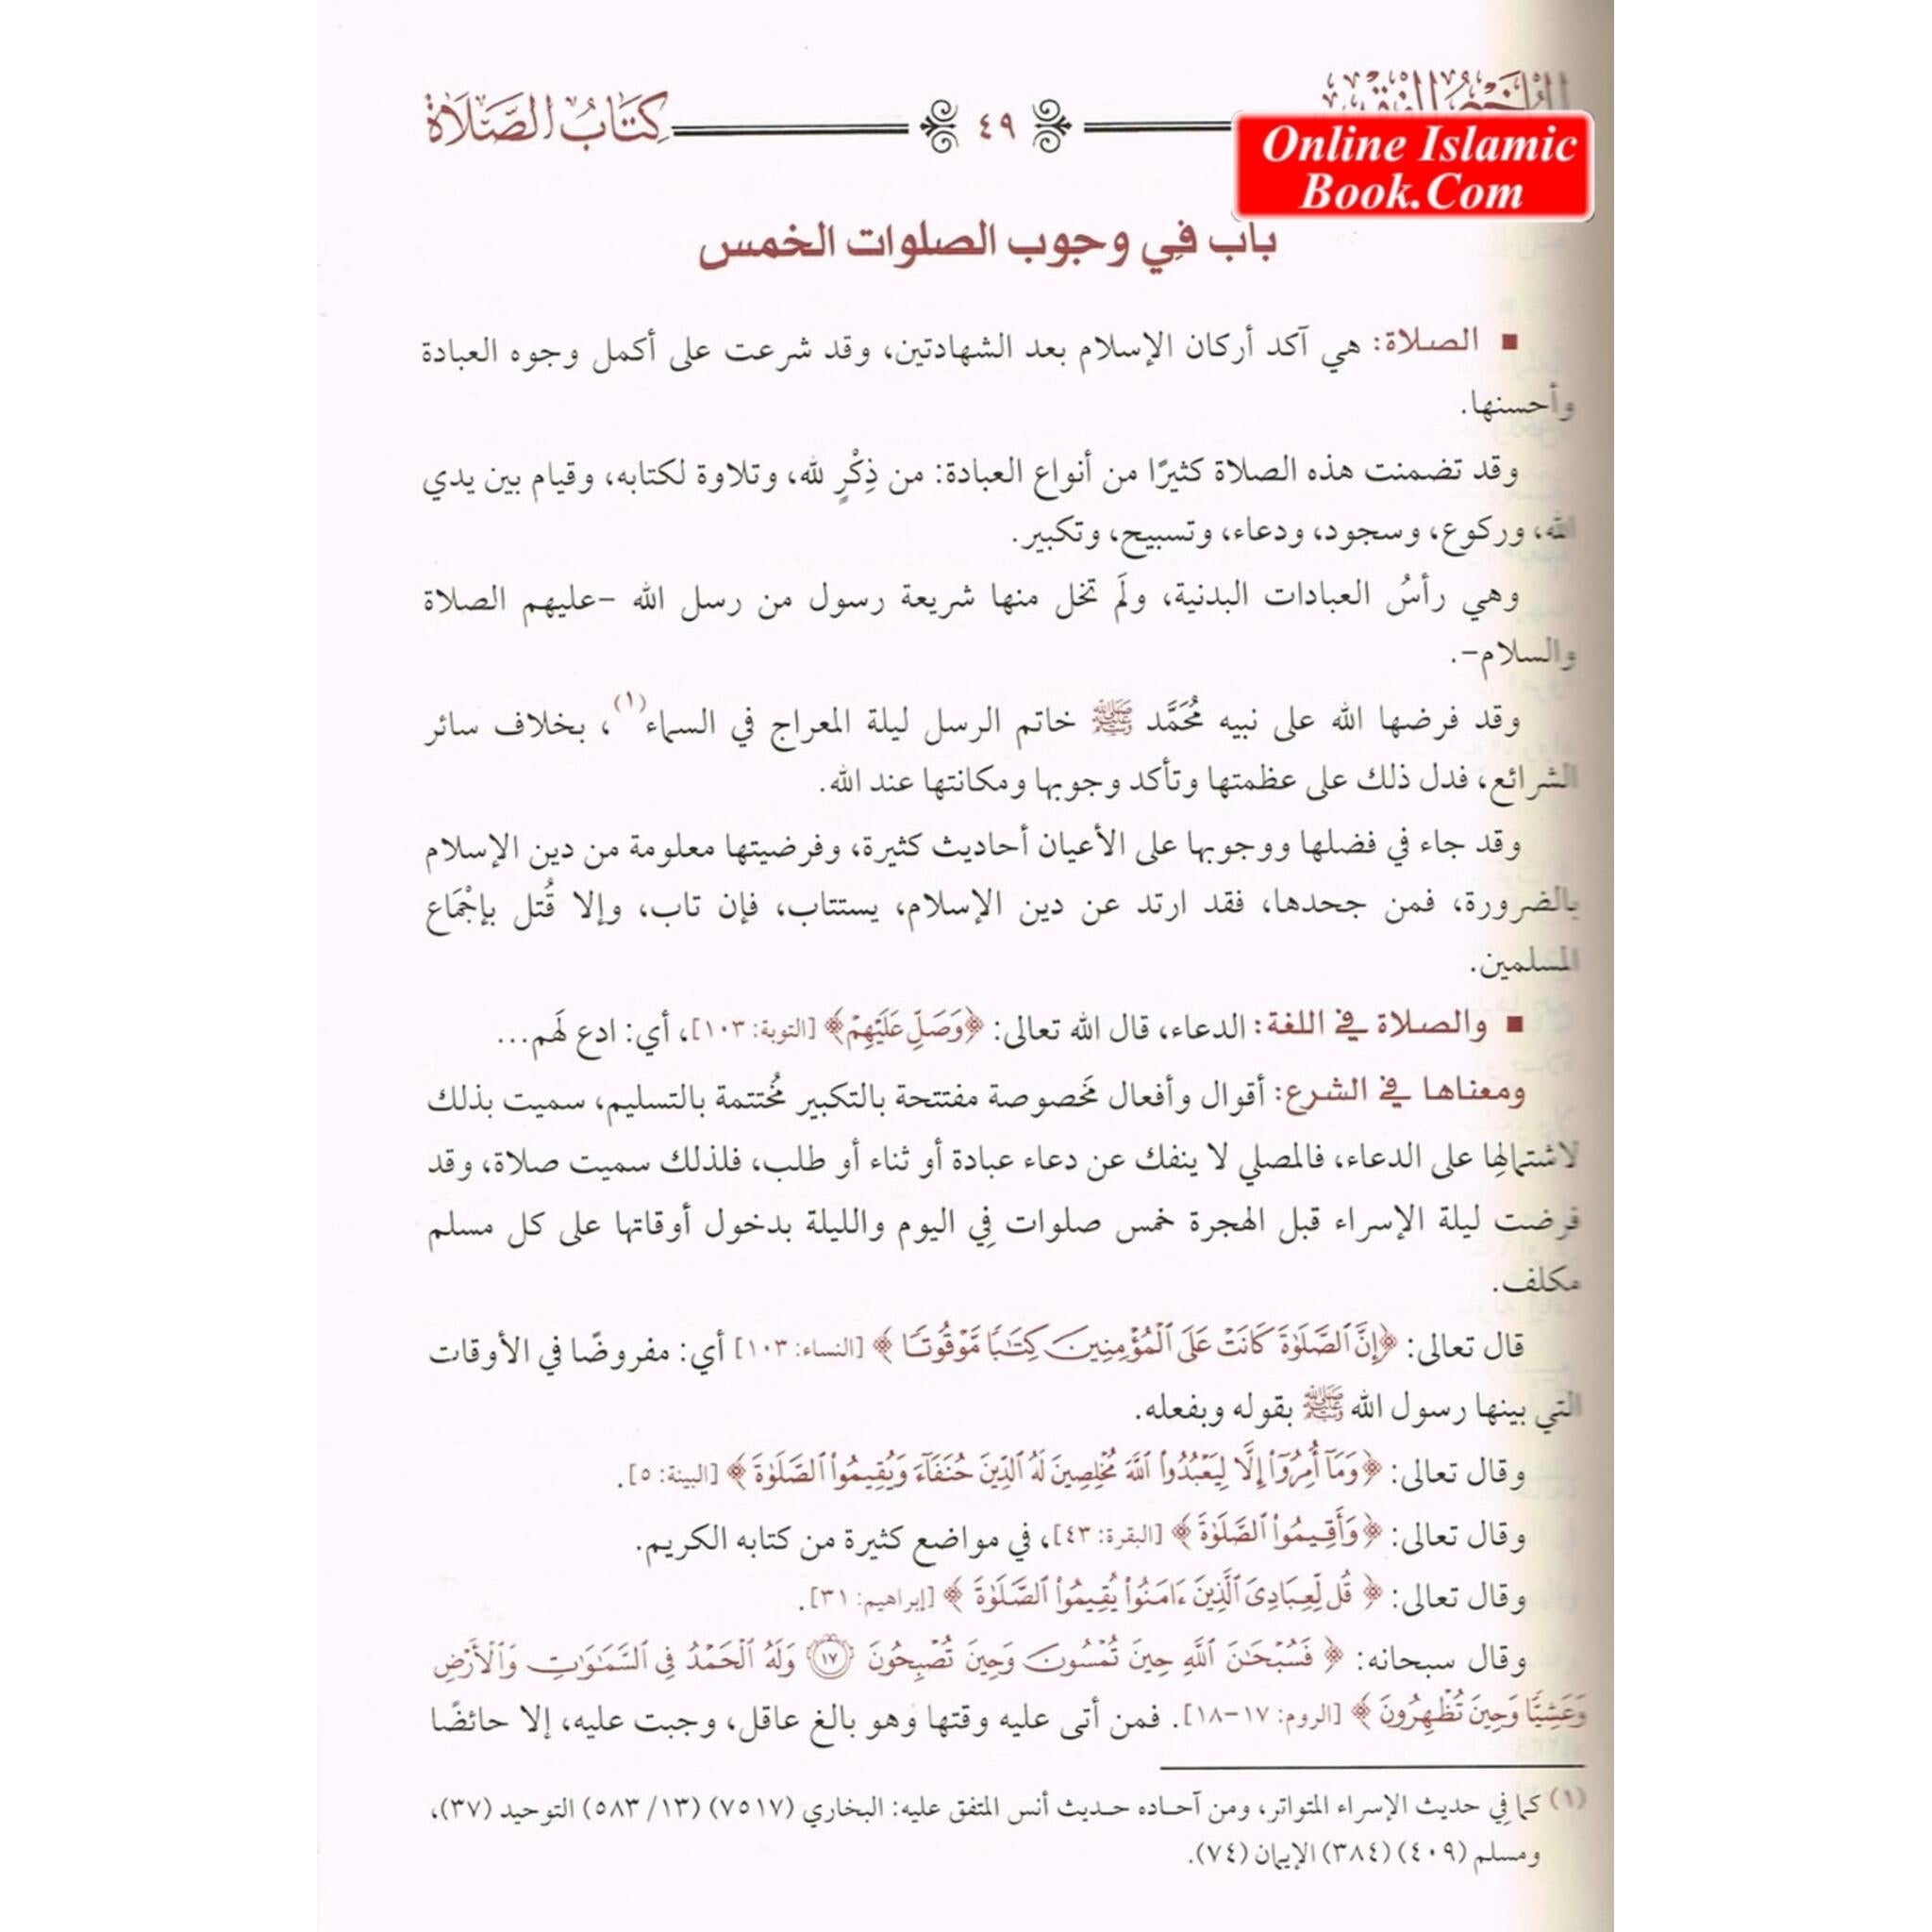 الملخص الفقهي
٤٩
كِتَابُ الصَّلَاة
Online Islamic
Book.Com
باب فِي وجوب الصلوات الخمس
■ الصلاة: هي آكد أركان الإسلام بعد الشهادتين، وقد شرعت على أكمل وجوه العبادة
وأحسنها.
وقد تضمنت هذه الصلاة كثيرًا من أنواع العبادة: من ذِكْرٍ لله، وتلاوة لكتابه، وقيام بين يدي
الله، وركوع، وسجود، ودعاء، وتسبيح، وتكبير.
وهي رأسُ العبادات البدنية، ولَم تخل منها شريعة رسول من رسل الله -عليهم الصلاة
والسلام-.
وقد فرضها الله على نبيه مُحَمَّد ﷺ خاتم الرسل ليلة المعراج في السماء(١)، بخلاف سائر
الشرائع، فدل ذلك على عظمتها وتأكد وجوبها ومكانتها عند الله.
وقد جاء في فضلها ووجوبها على الأعيان أحاديث كثيرة، وفرضيتها معلومة من دين الإسلام
بالضرورة، فمن جحدها، فقد ارتد عن دين الإسلام، يستتاب، فإن تاب، وإلا قُتل بإجْمَاع
المسلمين.
■ والصلاة في اللغة: الدعاء، قال الله تعالى: ﴿وَصَلِّ عَلَيْهِمْ﴾ [التوبة: ١٠٣]، أي: ادع لَهم...
ومعناها في الشرع: أقوال وأفعال مَخصوصة مفتتحة بالتكبير مُختتمة بالتسليم، سميت بذلك
لاشتمالِها على الدعاء، فالمصلي لا ينفك عن دعاء عبادة أو ثناء أو طلب، فلذلك سميت صلاة، وقد
فرضت ليلة الإسراء قبل الهجرة خمس صلوات فِي اليوم والليلة بدخول أوقاتها على كل مسلم
مكلف.
قال تعالى: ﴿إِنَّ ٱلصَّلَوٰةَ كَانَتْ عَلَى ٱلْمُؤْمِنِينَ كِتَٰبًا مَّوْقُوتًا﴾ [النساء: ١٠٣] أي: مفروضًا في الأوقات
التي بينها رسول الله ﷺ بقوله وبفعله.
وقال تعالى: ﴿وَمَآ أُمِرُوٓا۟ إِلَّا لِيَعْبُدُوا۟ ٱللَّهَ مُخْلِصِينَ لَهُ ٱلدِّينَ حُنَفَآءَ وَيُقِيمُوا۟ ٱلصَّلَوٰةَ﴾ [البينة: ٥].
وقال تعالى: ﴿وَأَقِيمُوا۟ ٱلصَّلَوٰةَ﴾ [البقرة: ٤٣]، في مواضع كثيرة من كتابه الكريم.
وقال تعالى: ﴿قُل لِّعِبَادِىَ ٱلَّذِينَ ءَامَنُوا۟ يُقِيمُوا۟ ٱلصَّلَوٰةَ﴾ [إبراهيم: ٣١].
وقال سبحانه: ﴿فَسُبْحَٰنَ ٱللَّهِ حِينَ تُمْسُونَ وَحِينَ تُصْبِحُونَ ١٧ وَلَهُ ٱلْحَمْدُ فِى ٱلسَّمَٰوَٰتِ وَٱلْأَرْضِ
وَعَشِيًّا وَحِينَ تُظْهِرُونَ﴾ [الروم: ١٧-١٨]. فمن أتى عليه وقتها وهو بالغ عاقل، وجبت عليه، إلا حائضًا
(١) كما فِي حديث الإسراء المتواتر، ومن آحاده حديث أنس المتفق عليه: البخاري (٧٥١٧) (١٣/ ٥٨٣) التوحيد (٣٧)،
ومسلم (٤٠٩) (٣٨٤) الإيمان (٧٤).